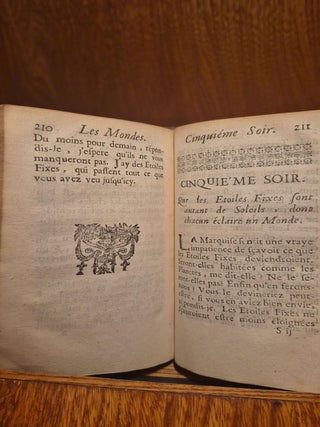 210 Les Mondes.
Du moins pour demain, répon-
dis-je, j'espere qu'ils ne vous
manqueront pas. J'ay des Etoiles
Fixes, qui passent tout ce que
vous avez veu jusqu'icy.
Cinquiéme Soir. 211
CINQUIE'ME SOIR.
Que les Etoiles Fixes sont
autant de Soleils, dont
chacun éclaire un Monde.
LA Marquise sentit une vraye
impatience de sçavoir ce que
les Etoiles Fixes deviendroient.
Seront-elles habitées comme les
Planetes, me dit-elle? Ne le
sont-elles pas? Enfin qu'en ferons-
nous? Vous le devineriez peut-
estre, si vous en aviez bien envie,
répondis-je. Les Etoiles Fixes ne
sçauroient estre moins éloignées
S ij